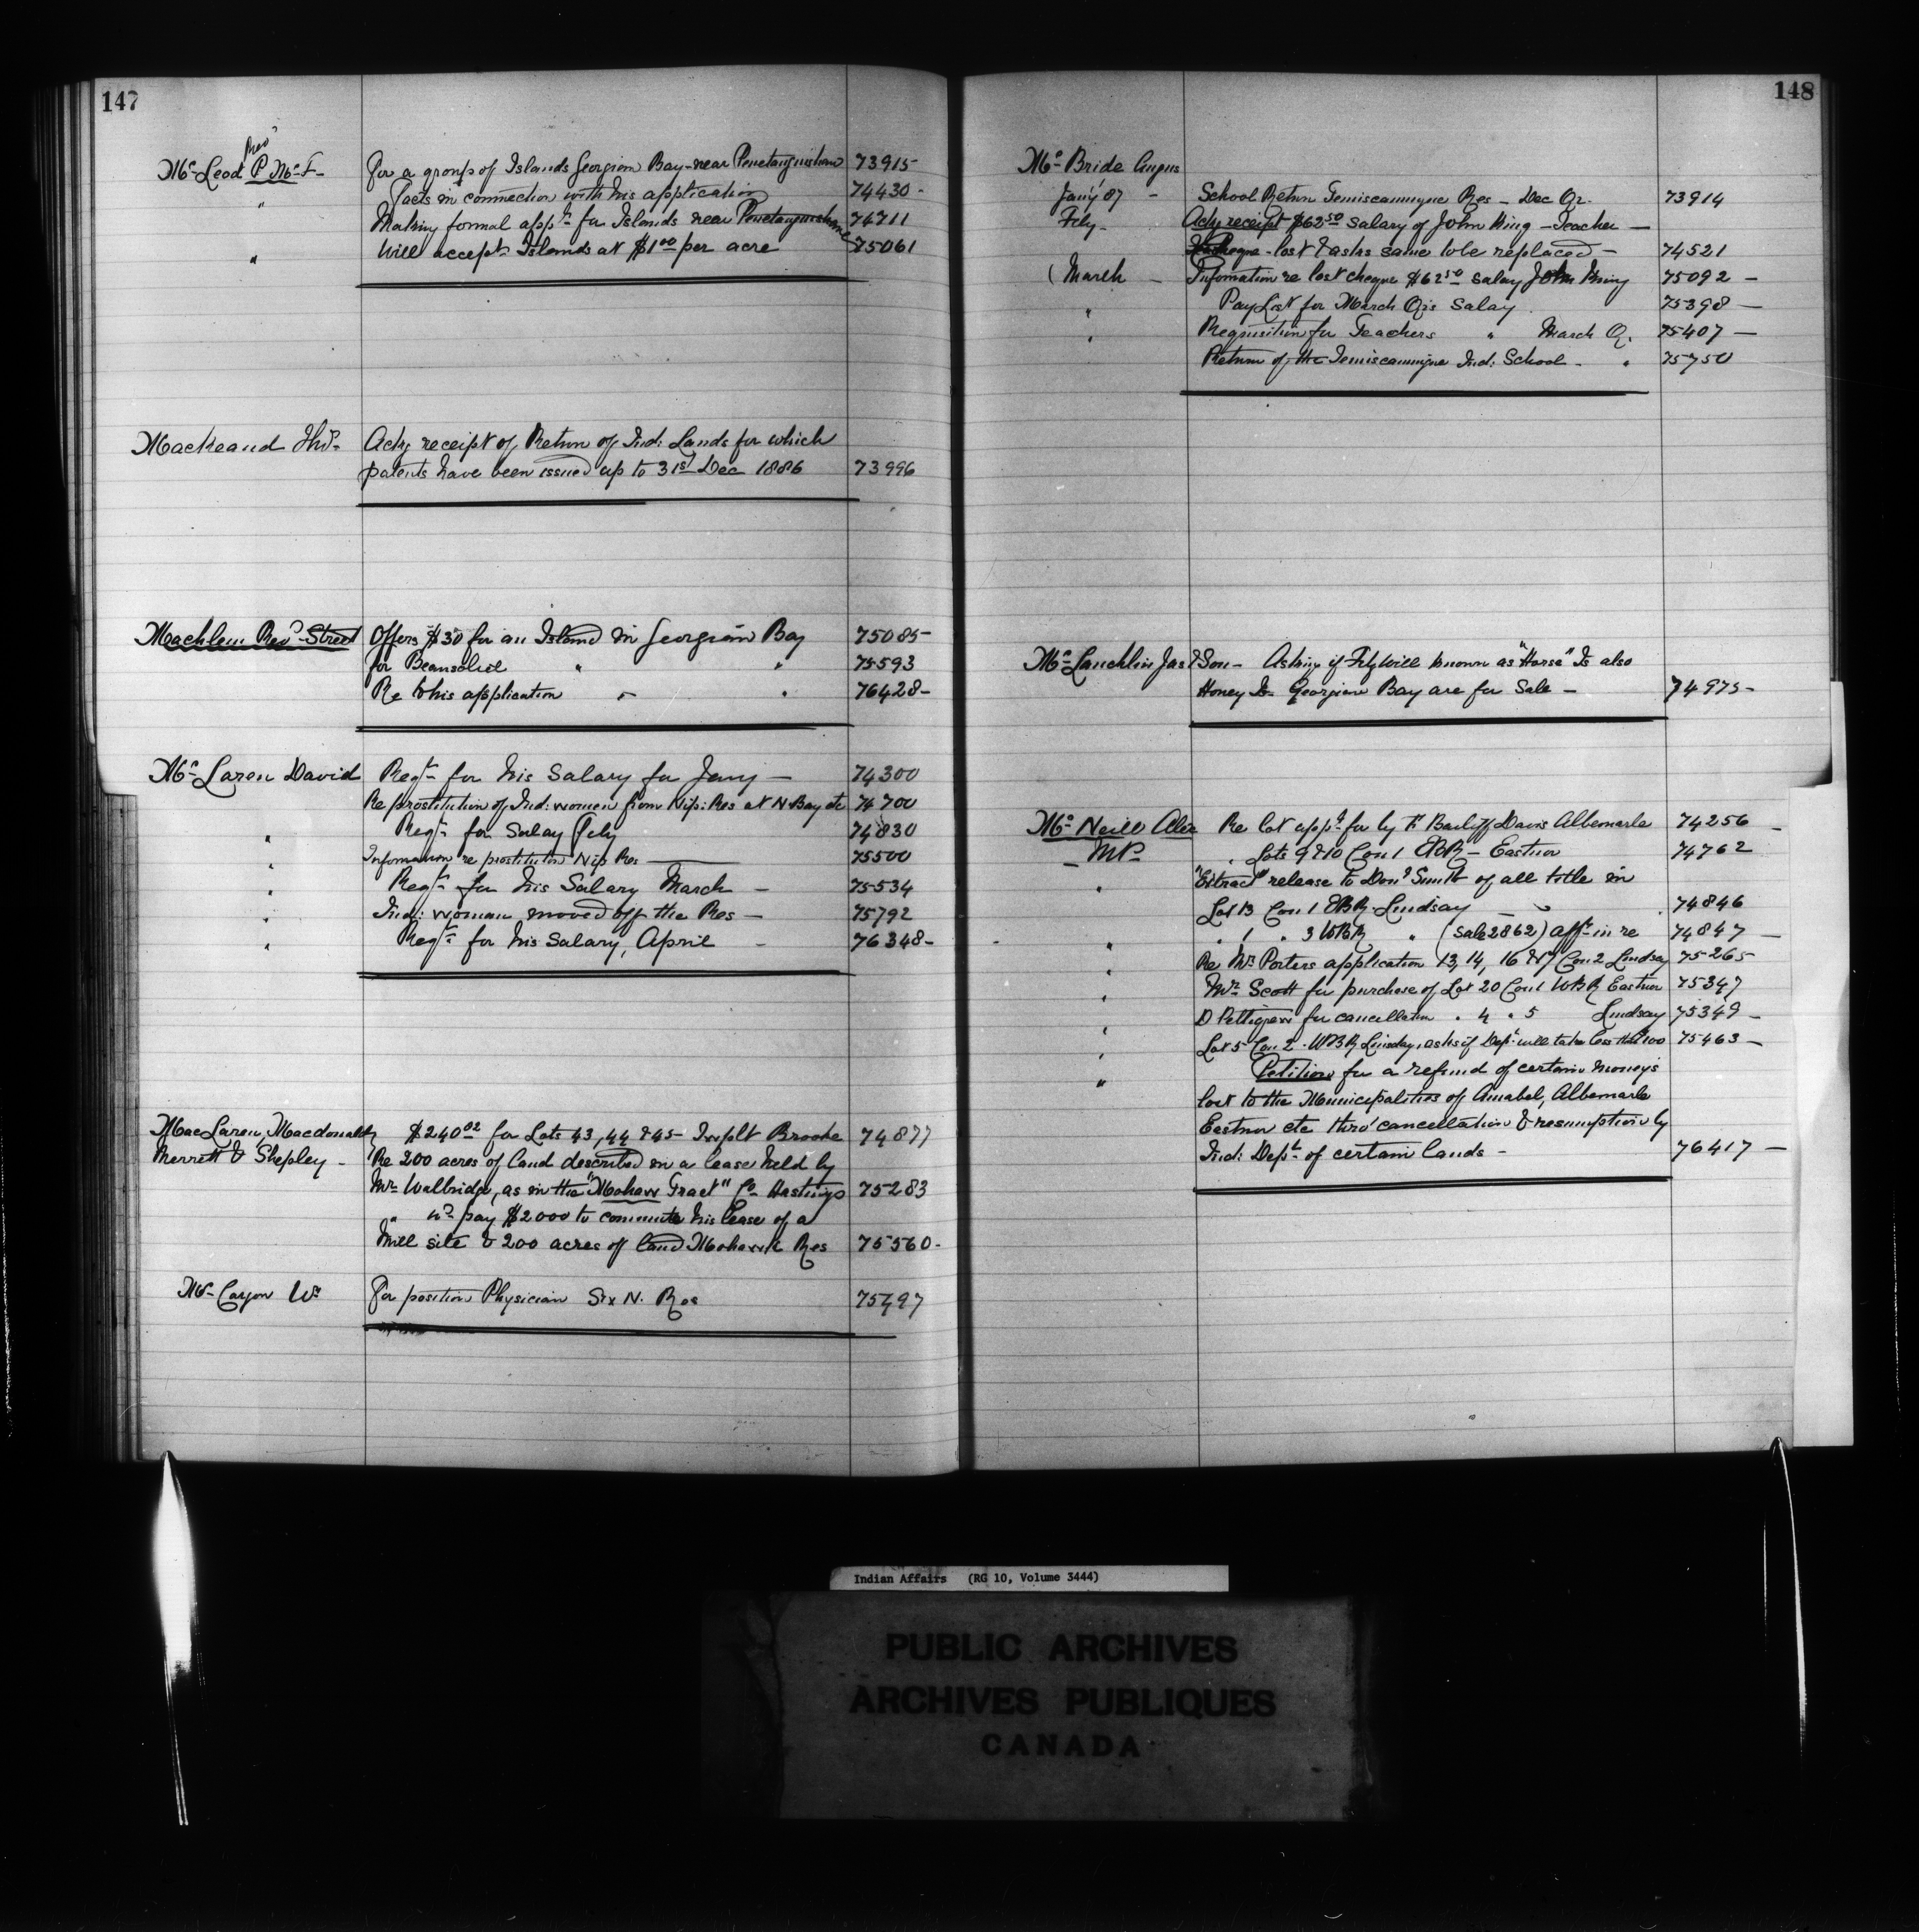 147
Rev^d
M^c Leod P. M^c F- For a group of Islands Georgian Bay - near Penetanguishene 73915
" Facts in connection with his application 74430 -
Making formal app^n for Islands near Penetanguishene 74711
" Will accept Islands at $1^00 per acre 75061
Mackeand Tho^s - Ackg receipt of Return of Ind: Lands for which
patents have been issued up to 31^st Dec 1886 73996
Macklem Rev^d Street Offers $30 for an Island in Georgian Bay 75085-
for Beausoliel " " 75593
Re to his application " " 76428-
M^c Laren David Reqt^n for his Salary for Jany - 74300
Re prostitution of Ind: women from Nip: Res at N. Bay etc 74700
" Reqt^n for Salay Feby 74830
" Information re prostitution Nip Res 75500
" Reqt^n for his Salary March - 75534
" Ind: woman moved off the Res - 75792
" Reqt^n for his Salary, April - 76348-
MacLaren, Macdonald $240^02 for Lots 43, 44 & 45 - Twplt Brooke 74877
Merrett & Shepley - Re 200 acres of land described in a lease held by
Mr Walbridge, as in the "Mohawk Tract" Co Hastings 75283
" w^d pay $2000 to commute his lease of a
Mill site & 200 acres of land Mohawk Res 75560-
M^c Cargow W^m For position Physician Six N. Res 75797
148
M^c Bride Angus
Jan'y 87 - School Return Temiscamingue Res - Dec Qr. 73914
Feby - Ackg receipt $62^50 salary of John King - Teacher -
Cheque - lost & asks same to be replaced - 74521
(March - Information re lost cheque $62^50 salary John King 75092 -
" Pay List for March Qrs Salay 75398 -
" Requisition for Teachers " March Qr. 75407 -
Return of the Temiscamingue Ind: School - " 75750
M^c Lauchlin Jas & Son - Asking if Fitzwill known as "Horse" Is also
Honey Is - Georgian Bay are for Sale - 74975-
M^c Neill Alex Re lot app^d for by F. Bailiff Davis Albemarle 74256 -
- M.P. " Lots 9 & 10 Con 1 EBR - Eastnor 74762
" "Extract" release to Don^d Smith of all title in
Lot 13 Con 1 EBR. Lindsay 74846
" " 1 " 3 WBR " (Sale 2862) aff^t in re 74847 -
" Re Mrs Porters application 13, 14, 16 & 17 Con 2 Lindsay 75265
" Mr Scott for purchase of Lot 20 Con 1 WBR Eastnor 75347
" D Pettigrew for cancellation " 4 " 5 Lindsay 75349 -
" Lot 5 Con 2 - WBR Lindsay, asks if Dep^t will take less than 100 75463 -
" Petition for a refund of certain moneys
lost to the Municipalities of Amabel, Albemarle
Eastnor etc thro' cancellation & resumption by
Ind: Dep^t of certain lands - 76417 -
Indian Affairs (RG 10, Volume 3444)
PUBLIC ARCHIVES
ARCHIVES PUBLIQUES
CANADA